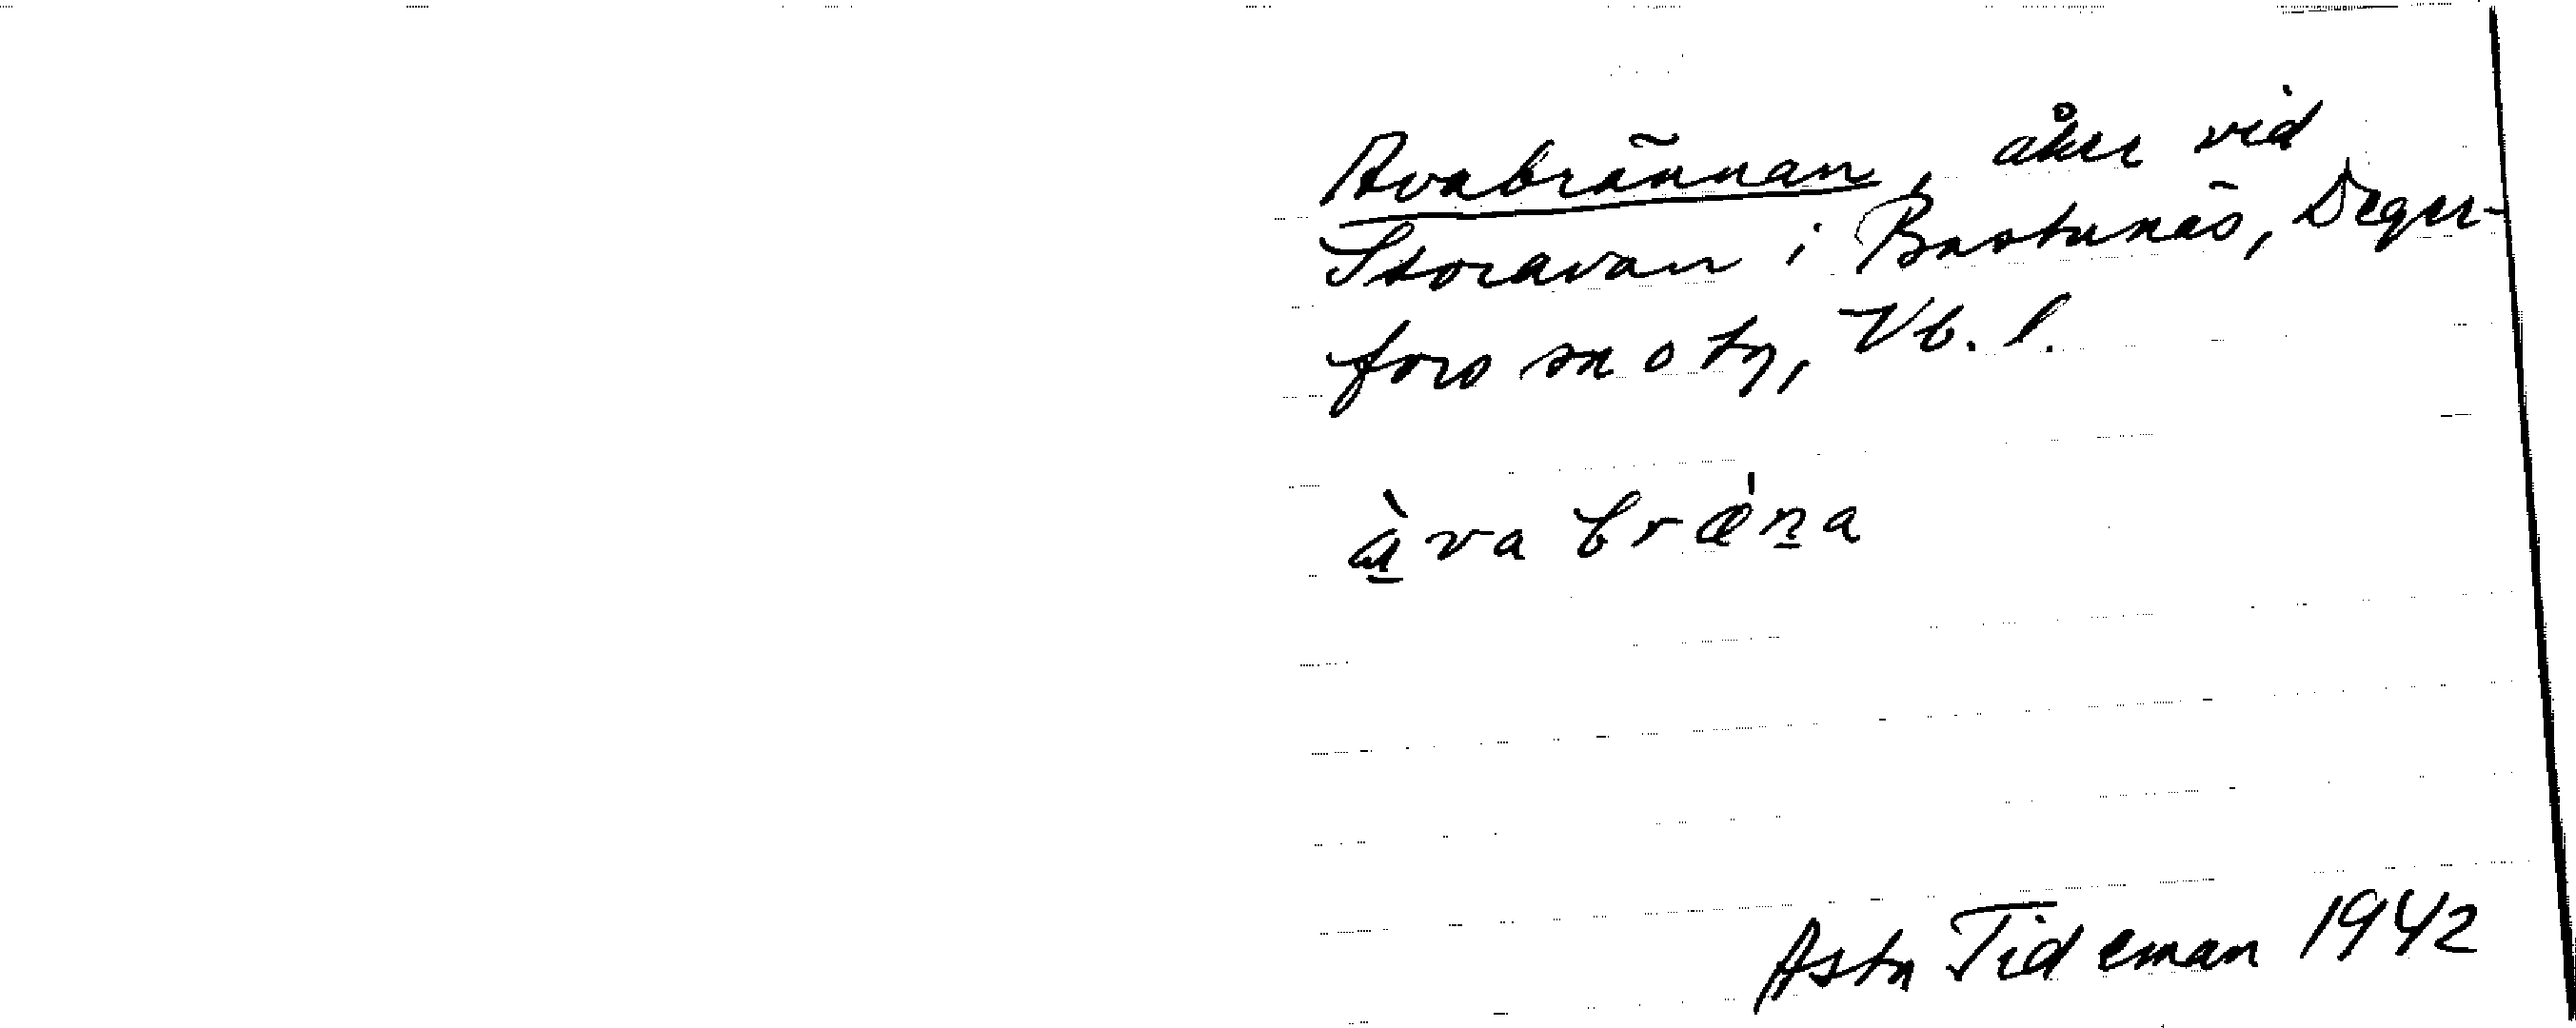 Avabrännan, åker vid
Storavan i Bastunäs, Deger-
fors sn o tg, Vb. l.
à̱va bræ̀ṉa
Asta Tideman 1942